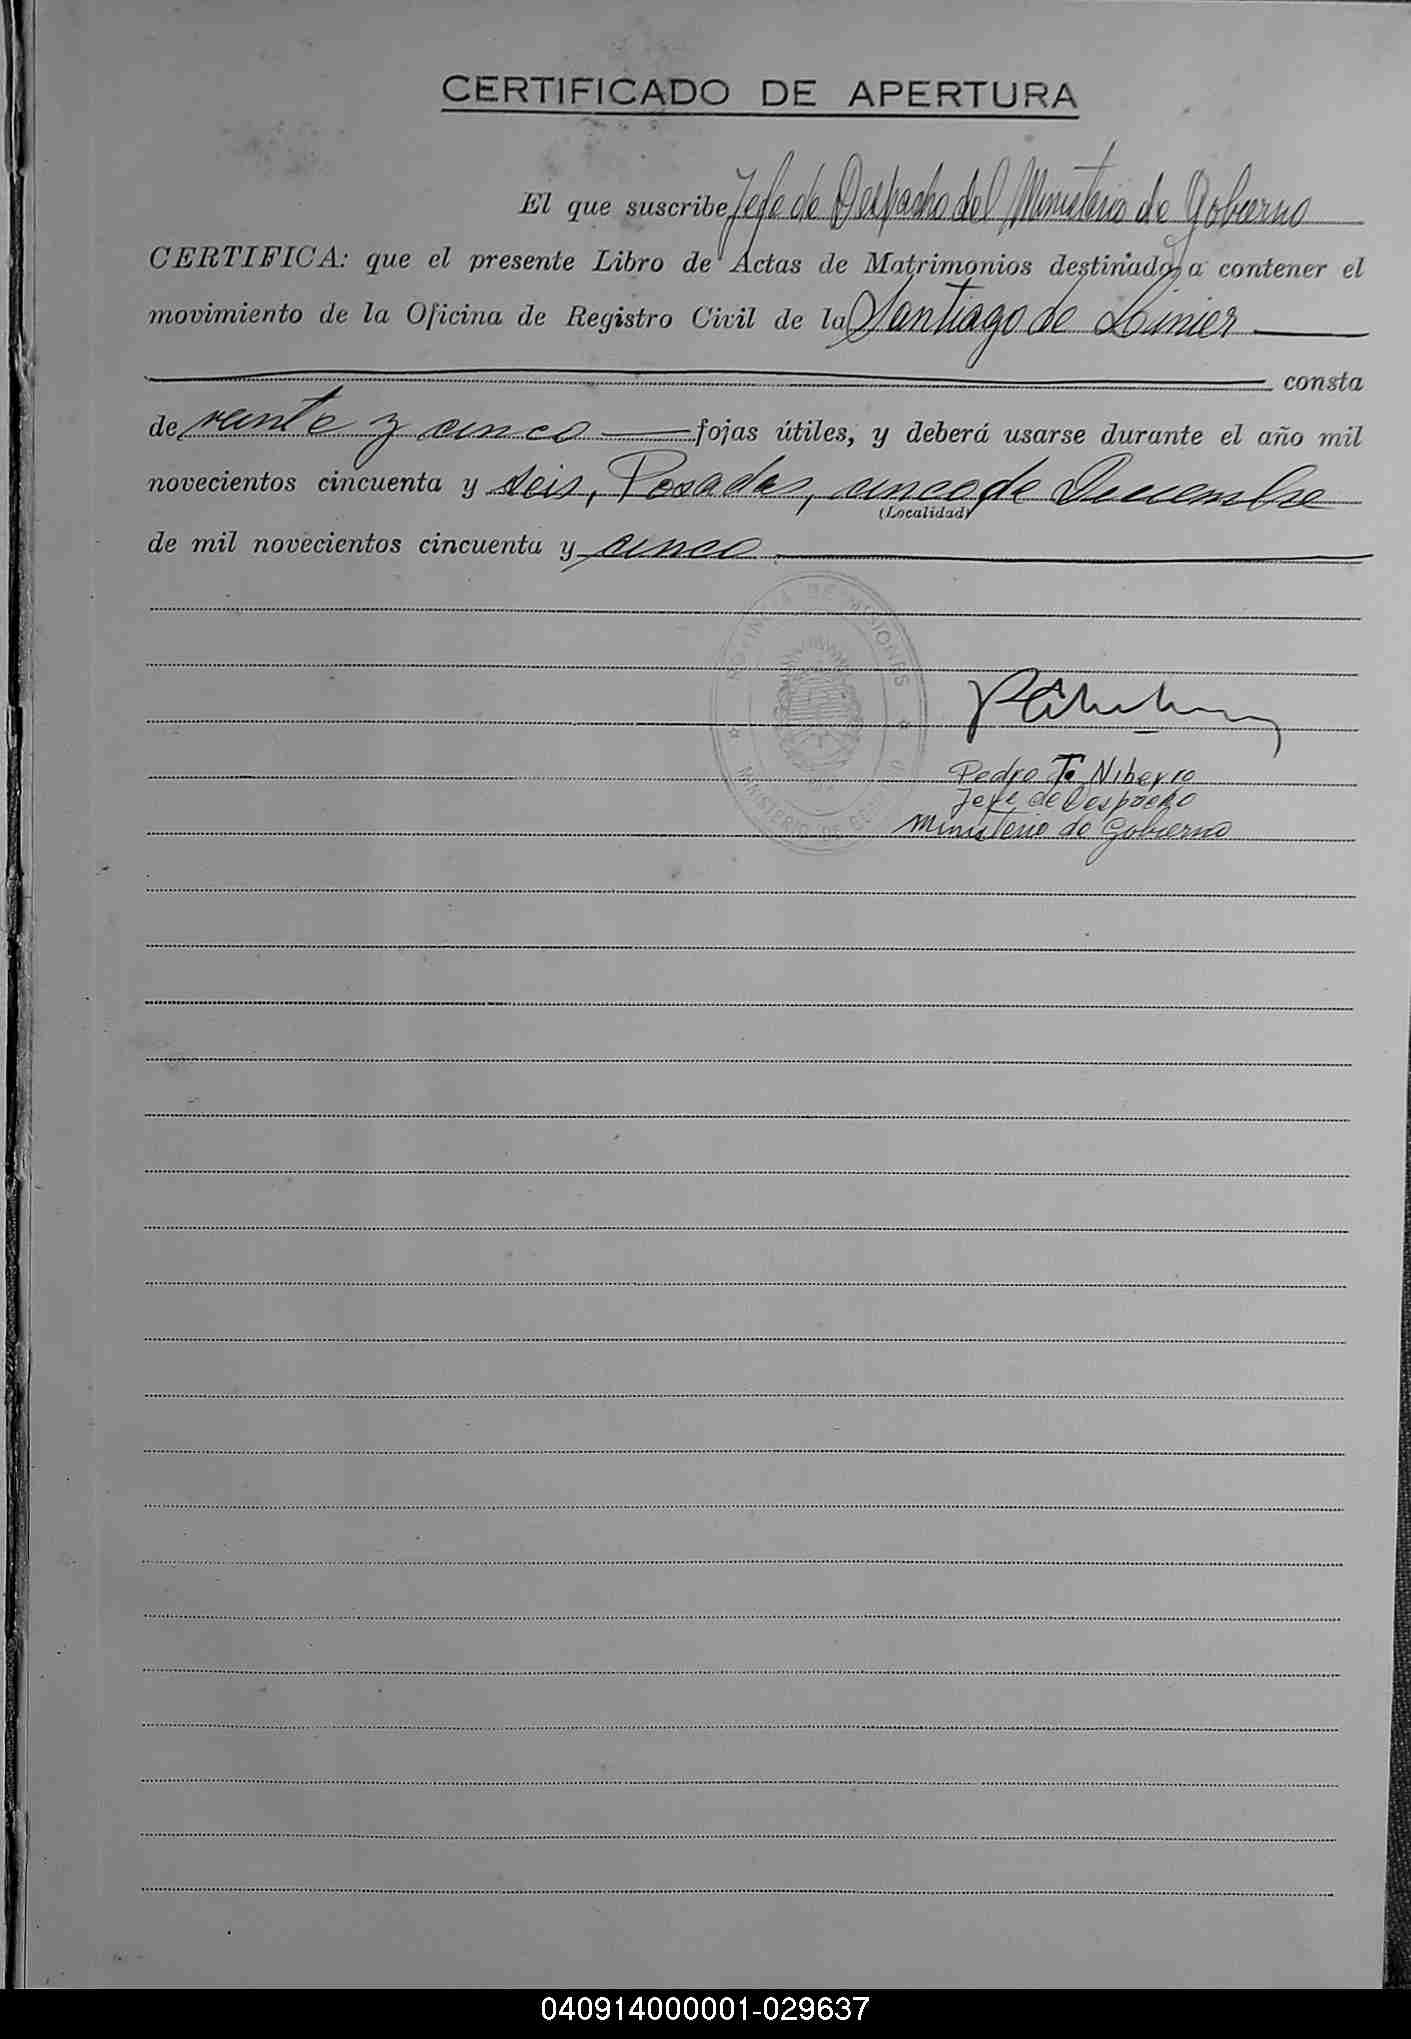 CERTIFICADO DE APERTURA
El que suscribe Jefe de Despacho del Ministerio de Gobierno
CERTIFICA: que el presente Libro de Actas de Matrimonios destinado, a contener el
movimiento de la Oficina de Registro Civil de la Santiago de Linier
consta
de veinte y cinco fojas útiles, y deberá usarse durante el año mil
novecientos cincuenta y seis, Posadas, cinco de Diciembre
(Localidad)
de mil novecientos cincuenta y cinco
PROVINCIA DE MISIONES
MINISTERIO DE GOBIERNO
Pedro T. Niherro
Jefe de Despacho
Ministerio de Gobierno
040914000001-029637